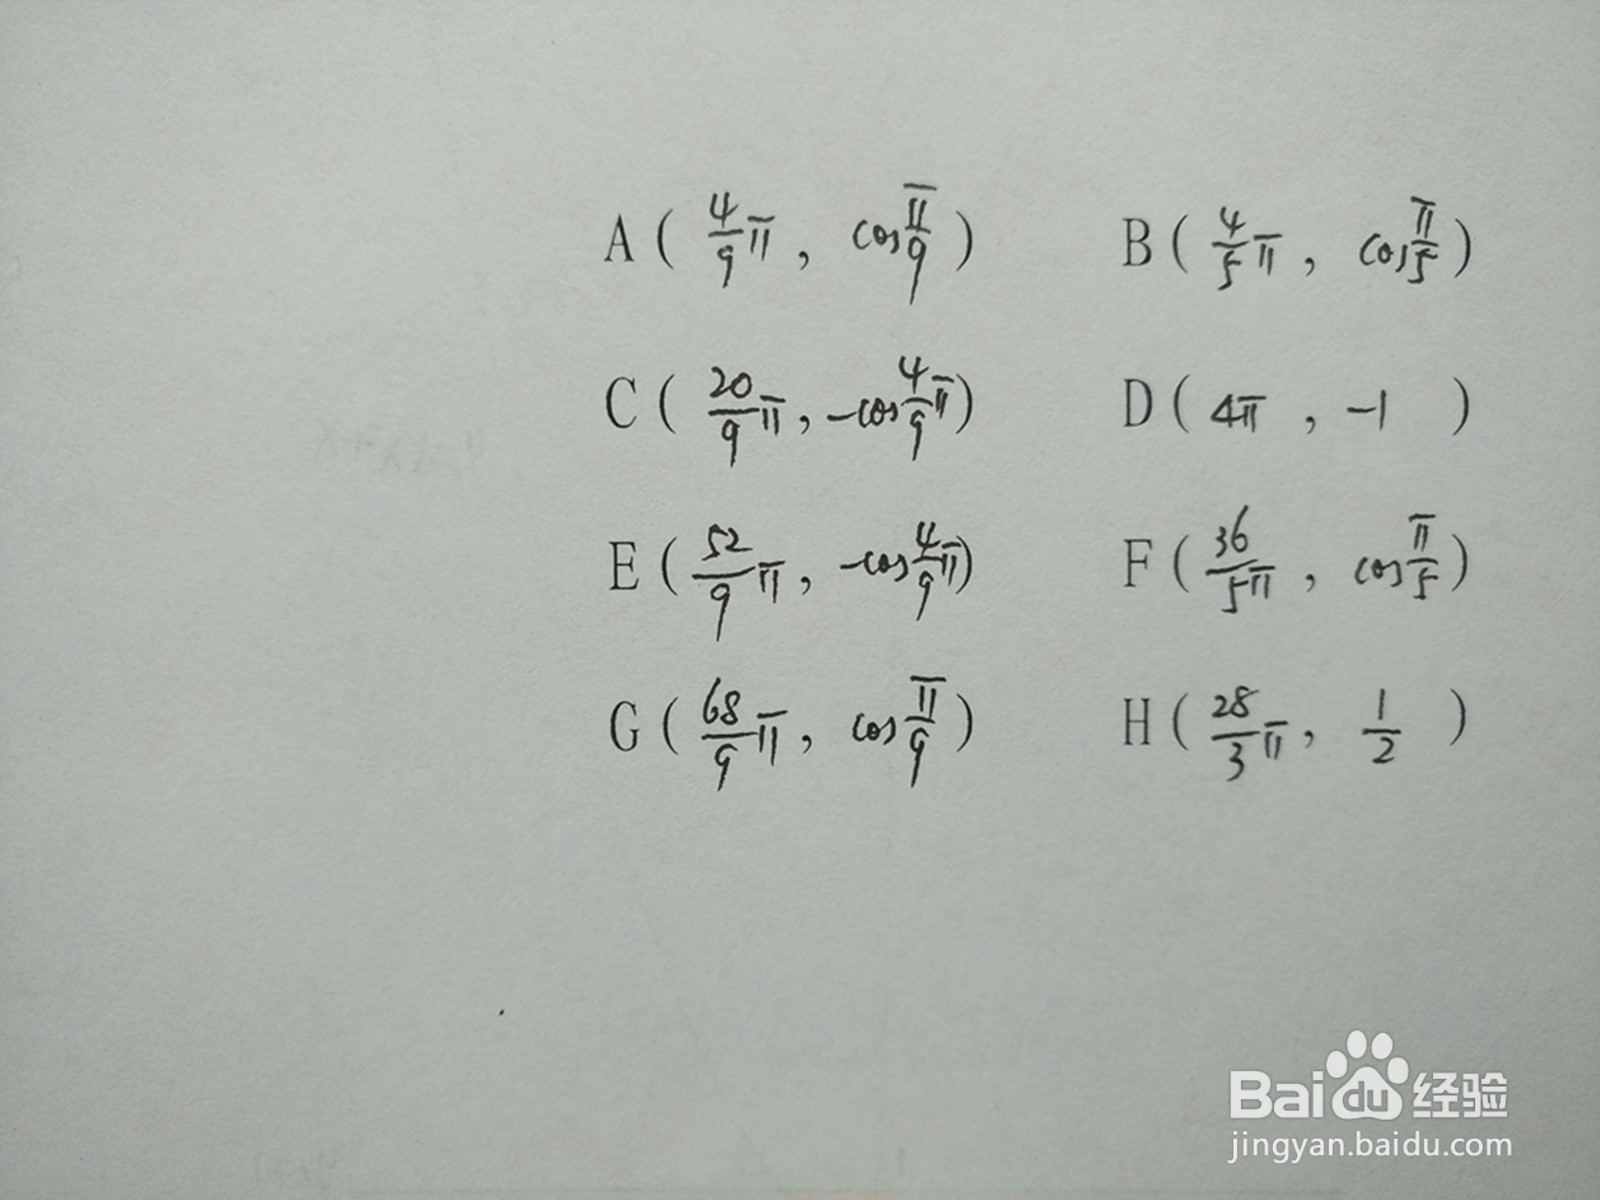 A ( 4/9 π , cos π/9 ) B ( 4/5 π , cos π/5 )
C ( 20/9 π , -cos 4/9 π ) D ( 4π , -1 )
E ( 52/9 π , -cos 4/9 π ) F ( 36/5 π , cos π/5 )
G ( 68/9 π , cos π/9 ) H ( 28/3 π , 1/2 )
Baidu 经验
jingyan.baidu.com